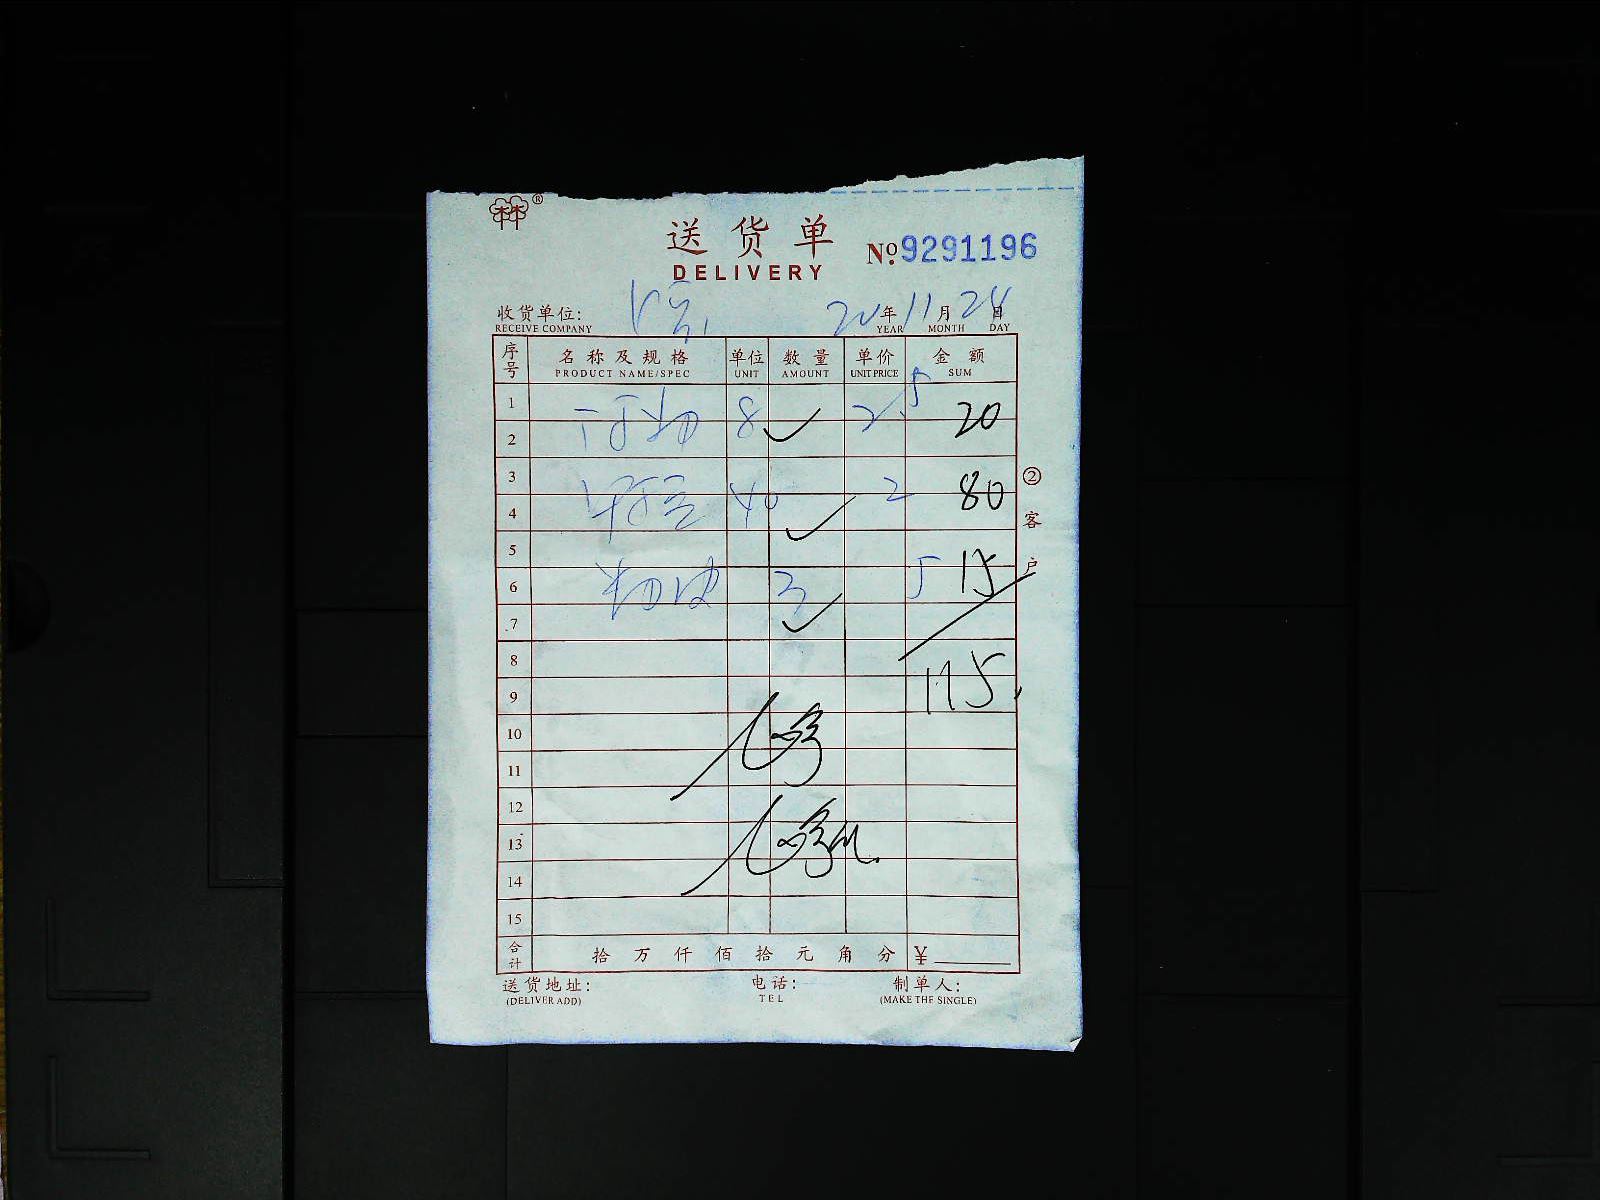 林®
送货单
DELIVERY
№9291196
收货单位:
20年11月28日
RECEIVE COMPANY YEAR MONTH DAY
序号 名称及规格 单位 数量 单价 金额
PRODUCT NAME/SPEC UNIT AMOUNT UNIT PRICE SUM
1 8 2.5 20
2
3 40 2 80
4
5
6 3 5 15
7
8
9 115
10
11
12
13
14
15
合计 拾 万 仟 佰 拾 元 角 分 ¥
②客户
送货地址: 电话: 制单人:
(DELIVER ADD) TEL (MAKE THE SINGLE)